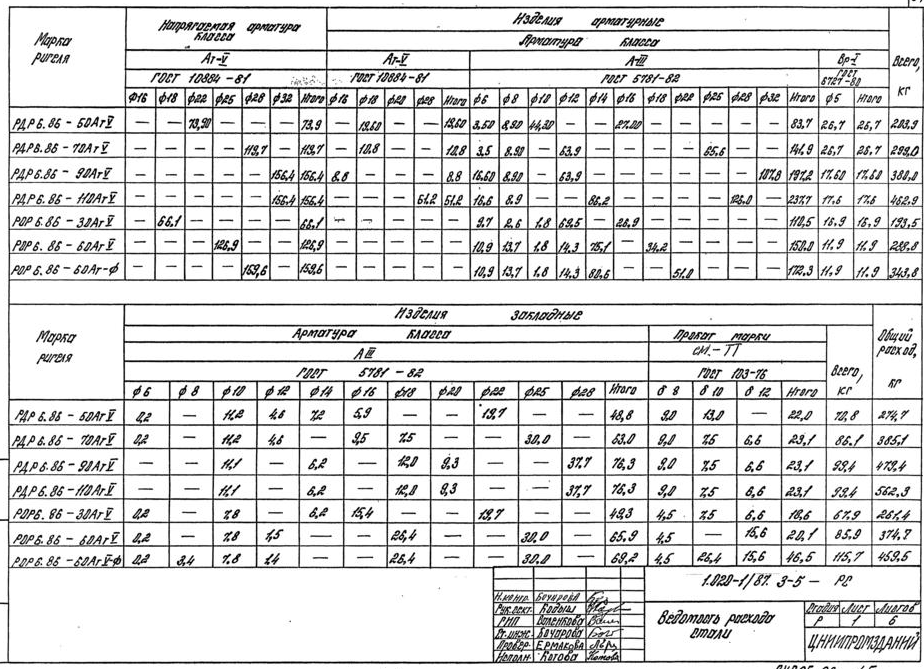 Марка ригеля | Напрягаемая арматура класса | Изделия арматурные | Всего, кг
Арматура класса
Ат-V | Ат-V | А-III | Вр-I
ГОСТ 10884-81 | ГОСТ 10884-81 | ГОСТ 5781-82 | ГОСТ 6727-80
ф16 ф18 ф22 ф25 ф28 ф32 Итого ф16 ф18 ф20 ф28 Итого ф6 ф8 ф10 ф12 ф14 ф16 ф18 ф22 ф25 ф28 ф32 Итого ф5 Итого
РДР 6.86-50АтV — — 73,90 — — — 73,9 — 19,60 — — 19,60 3,50 8,90 44,30 — — 27,00 — — — — — 83,7 26,7 26,7 203,9
РДР 6.86-70АтV — — — — 119,7 — 119,7 — 10,8 — — 10,8 3,5 8,90 — 63,9 — — — — 65,6 — — 141,9 26,7 26,7
РДР 6.86-90АтV — — — — — 156,4 156,4 8,8 — — — 8,8 16,60 8,90 — 63,9 — — — — — — 107,8 197,2 17,60 17,60 380,0
РДР 6.86-110АтV — — — — — 156,4 156,4 — — — 51,2 51,2 16,6 8,9 — — 86,2 — — — — 126,0 — 237,7 17,6 17,6 462,9
РОР 6.86-30АтV — 66,1 — — — — 66,1 — — — — — 9,7 2,6 1,8 69,5 — 26,9 — — — — — 110,5 16,9 16,9 193,5
РОР 6.86-60АтV — — — 126,9 — — 126,9 — — — — — 10,9 13,7 1,8 14,3 75,1 — 34,2 — — — — 150,0 11,9 11,9 288,8
РОР 6.86-60Ат-ф — — — — 159,6 — 159,6 — — — — — 10,9 13,7 1,8 14,3 80,6 — — 51,0 — — — 172,3 11,9 11,9 343,8
Марка ригеля | Изделия закладные | Общий расход, кг
Арматура класса | Прокат марки | Всего, кг
А III
ГОСТ 5781-82 | ГОСТ 103-76
ф6 ф8 ф10 ф12 ф14 ф16 ф18 ф20 ф22 ф25 ф28 Итого δ 8 δ 10 δ 12 Итого
РДР 6.86-50АтV 0,2 — 11,2 4,6 7,2 5,9 — — 19,7 — — 48,8 9,0 13,0 — 22,0 70,8 274,7
РДР 6.86-70АтV 0,2 — 11,2 4,6 — 9,5 7,5 — — 30,0 — 63,0 9,0 7,5 6,6 23,1 86,1 385,1
РДР 6.86-90АтV — — 11,1 — 6,2 — 12,0 9,3 — — 37,7 76,3 9,0 7,5 6,6 23,1 99,4 479,4
РДР 6.86-110АтV — — 11,1 — 6,2 — 12,0 9,3 — — 37,7 76,3 9,0 7,5 6,6 23,1 99,4 562,3
РОР 6.86-30АтV 0,2 — 7,8 — 6,2 15,4 — — 19,7 — — 49,3 4,5 7,5 6,6 18,6 67,9 261,4
РОР 6.86-60АтV 0,2 — 7,8 1,5 — — 26,4 — — 30,0 — 65,9 4,5 — 15,6 20,1 85,9 374,7
РОР 6.86-60АтV-ф 0,2 3,4 7,8 1,4 — — 26,4 — — 30,0 — 69,2 4,5 26,4 15,6 46,5 115,7 459,5
1.020-1/87. 3-5 - РС
Н.контр. Бочарова
Рук.сект. Кодыш
РИП Валенкова
Ст.инж. Бочарова
Провер. Ермакова
Исполн. Котова
Ведомость расхода стали
Стадия Лист Листов
Р 1 6
ЦНИИПРОМЗДАНИЙ